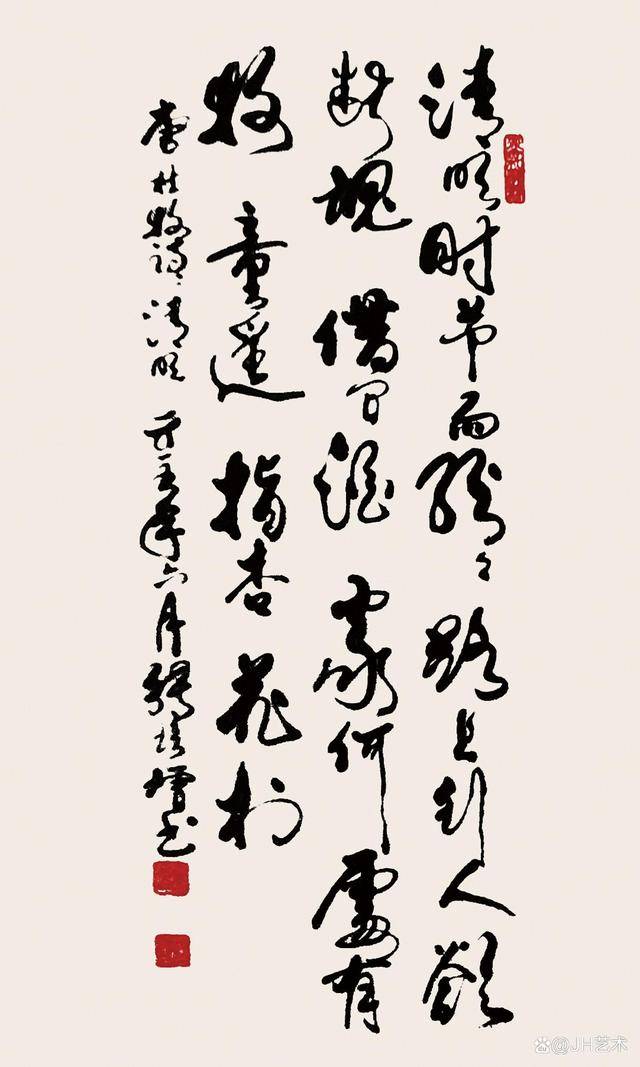 清明时节雨纷々路上行人欲
断魂借问酒家何處有
牧童遥指杏花村
唐杜牧诗清明 年六月 书
@JH艺术